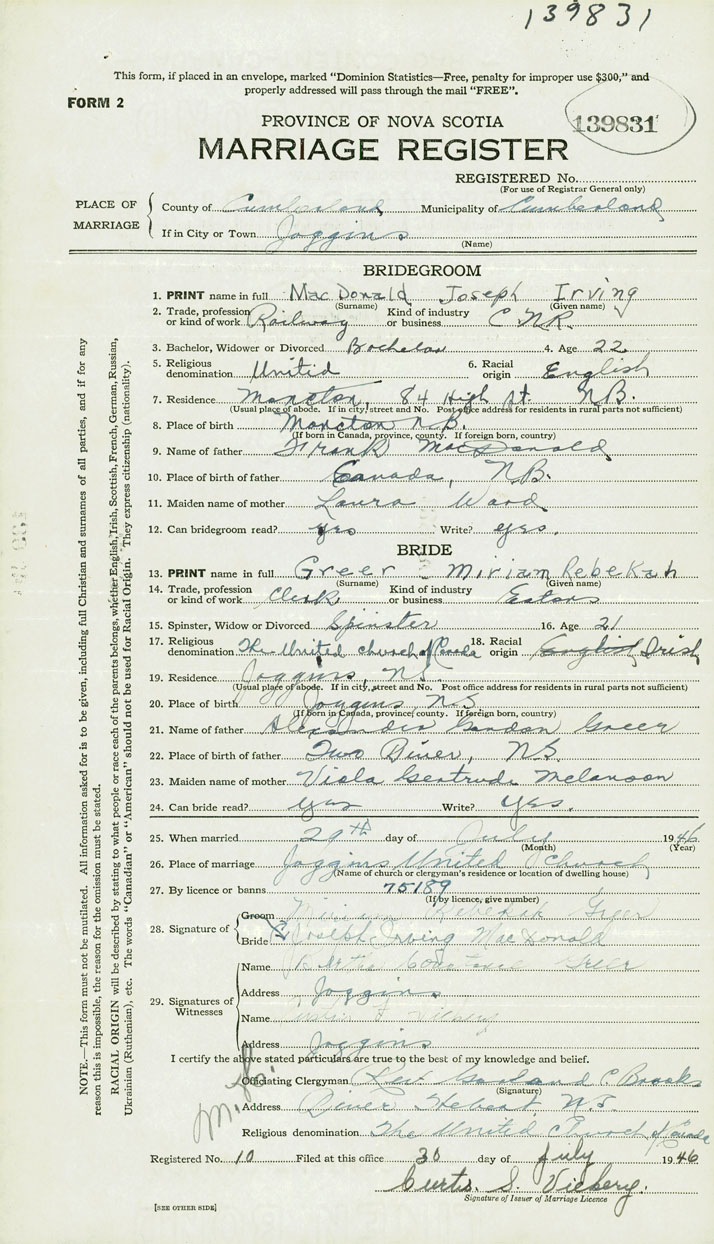 139831
This form, if placed in an envelope, marked "Dominion Statistics—Free, penalty for improper use $300," and
properly addressed will pass through the mail "FREE".
FORM 2
PROVINCE OF NOVA SCOTIA
139831
MARRIAGE REGISTER
REGISTERED No.
(For use of Registrar General only)
PLACE OF MARRIAGE
County of Cumberland Municipality of Cumberland
If in City or Town Joggins
(Name)
BRIDEGROOM
1. PRINT name in full MacDonald Joseph Irving
(Surname) (Given name)
2. Trade, profession or kind of work Railway Kind of industry or business C.N.R.
3. Bachelor, Widower or Divorced Bachelor 4. Age 22
5. Religious denomination United 6. Racial origin English
7. Residence Moncton, 84 High St. N.B.
(Usual place of abode. If in city, street and No. Post office address for residents in rural parts not sufficient)
8. Place of birth Moncton N.B.
(If born in Canada, province, county. If foreign born, country)
9. Name of father Frank MacDonald
10. Place of birth of father Canada, N.B.
11. Maiden name of mother Laura Ward
12. Can bridegroom read? yes Write? yes.
BRIDE
13. PRINT name in full Greer Miriam Rebekah
(Surname) (Given name)
14. Trade, profession or kind of work Clerk Kind of industry or business Eatons
15. Spinster, Widow or Divorced Spinster 16. Age 21
17. Religious denomination The United Church of Canada 18. Racial origin English Irish
19. Residence Joggins, N.S.
(Usual place of abode. If in city, street and No. Post office address for residents in rural parts not sufficient)
20. Place of birth Joggins, N.S.
(If born in Canada, province, county. If foreign born, country)
21. Name of father Alexandra Gordon Greer
22. Place of birth of father Two River, N.S.
23. Maiden name of mother Viola Gertrude Melanson
24. Can bride read? yes Write? yes.
25. When married 29th day of July 1946
(Month) (Year)
26. Place of marriage Joggins United Church
(Name of church or clergyman's residence or location of dwelling house)
27. By licence or banns 75189
(If by licence, give number)
28. Signature of
Groom Miriam Rebekah Greer
Bride Joseph Irving MacDonald
29. Signatures of Witnesses
Name Greer
Address Joggins
Name
Address Joggins
I certify the above stated particulars are true to the best of my knowledge and belief.
Officiating Clergyman Rev Garland C. Brooks
(Signature)
Address River Hebert N.S.
Religious denomination The United Church of Canada
Registered No. 10 Filed at this office 30 day of July 1946
Curtis. S. Vickery.
Signature of Issuer of Marriage Licence
[SEE OTHER SIDE]
NOTE.—This form must not be mutilated. All information asked for is to be given, including full Christian and surnames of all parties, and if for any
reason this is impossible, the reason for the omission must be stated.
RACIAL ORIGIN will be described by stating to what people or race each of the parents belongs, whether English, Irish, Scottish, French, German, Russian,
Ukrainian (Ruthenian), etc. The words "Canadian" or "American" should not be used for Racial Origin. They express citizenship (nationality).